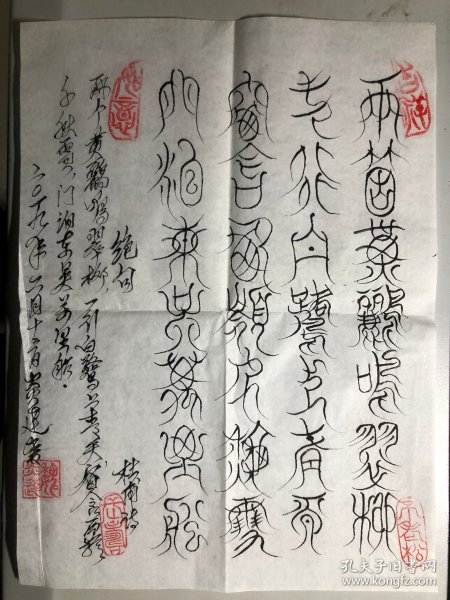 兩箇黃鸝鳴翠柳
一行白鷺上青天
窗含西嶺千秋雪
門泊東吳萬里船
绝句
杜甫诗
两个黄鹂鸣翠柳，一行白鹭上青天，窗含西岭
千秋雪，门泊东吴万里船。
二〇一九年六月十二日
孔夫子旧书网
www.kongfz.com